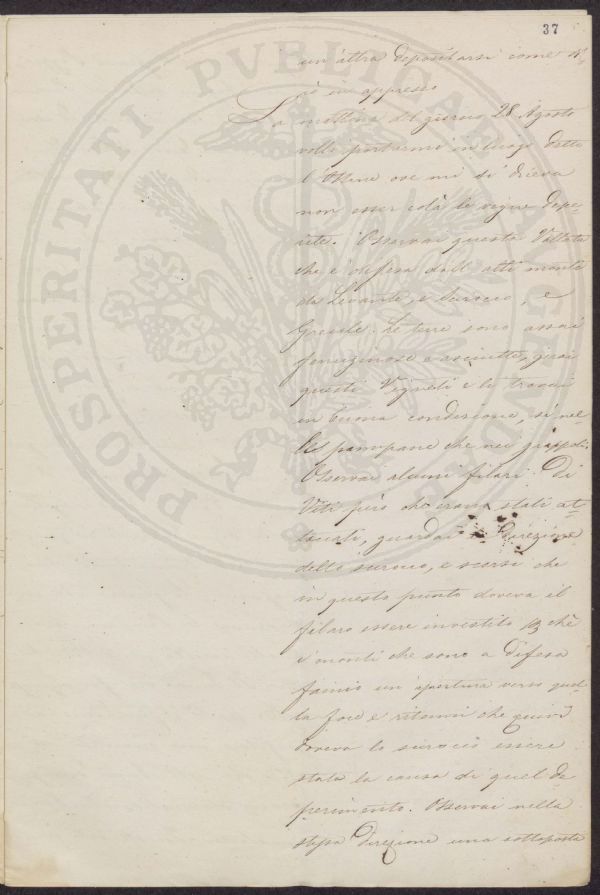 37
un'altra depositarsi come di-
rò in appresso
La mattina del giorno 28 Agosto
volli portarmi in luogo detto
l'Ossine ove mi si diceva
non esser colà le vigne depe-
rite. Osservai questa Vallata
che è difesa dall'alti monti
da Levante, e Scirocco, e
Grecale. Le terre sono assai
ferruginose e asciutte, girai
questi Vigneti e li trovai
in buona condizione, sì nel-
le pampane che nei grappoli.
Osservai alcuni filari di
Viti però che erano stati at-
taccati, guardai la direzione
dello scirocco, e scorsi che
in questo punto doveva il
filaro essere investito p chè
i monti che sono a difesa
fanno un apertura verso quel-
la foce e ritenni che quivi
doveva lo scirocco essere
stata la causa di quel de
perimento. Osservai nella
stessa direzione una sottoposta
PROSPERITATI PUBLICAE AUGENDAE